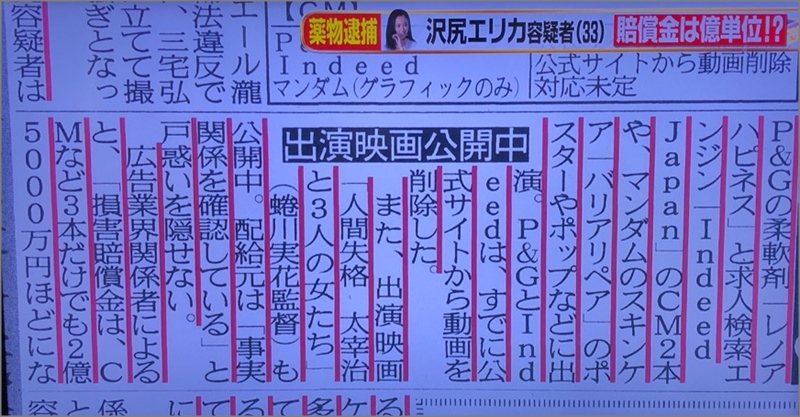 薬物逮捕 沢尻エリカ容疑者(33) 賠償金は億単位!?
Indeed
マンダム(グラフィックのみ)
公式サイトから動画削除
対応未定
エール瀧
法違反で
、三宅弘
立てて撮
ぎとなっ
容疑者は
出演映画公開中
P&Gの柔軟剤「レノア
ハピネス」と求人検索エ
ンジン「Indeed
Japan」のCM2本
や、マンダムのスキンケ
ア「バリアリペア」のポ
スターやポップなどに出
演。P&GとInd
eedは、すでに公
式サイトから動画を
削除した。
また、出演映画
「人間失格 太宰治
と3人の女たち」
(蜷川実花監督)も
公開中。配給元は「事実
関係を確認している」と
戸惑いを隠せない。
広告業界関係者による
と、「損害賠償金は、C
Mなど3本だけでも2億
5000万円ほどにな